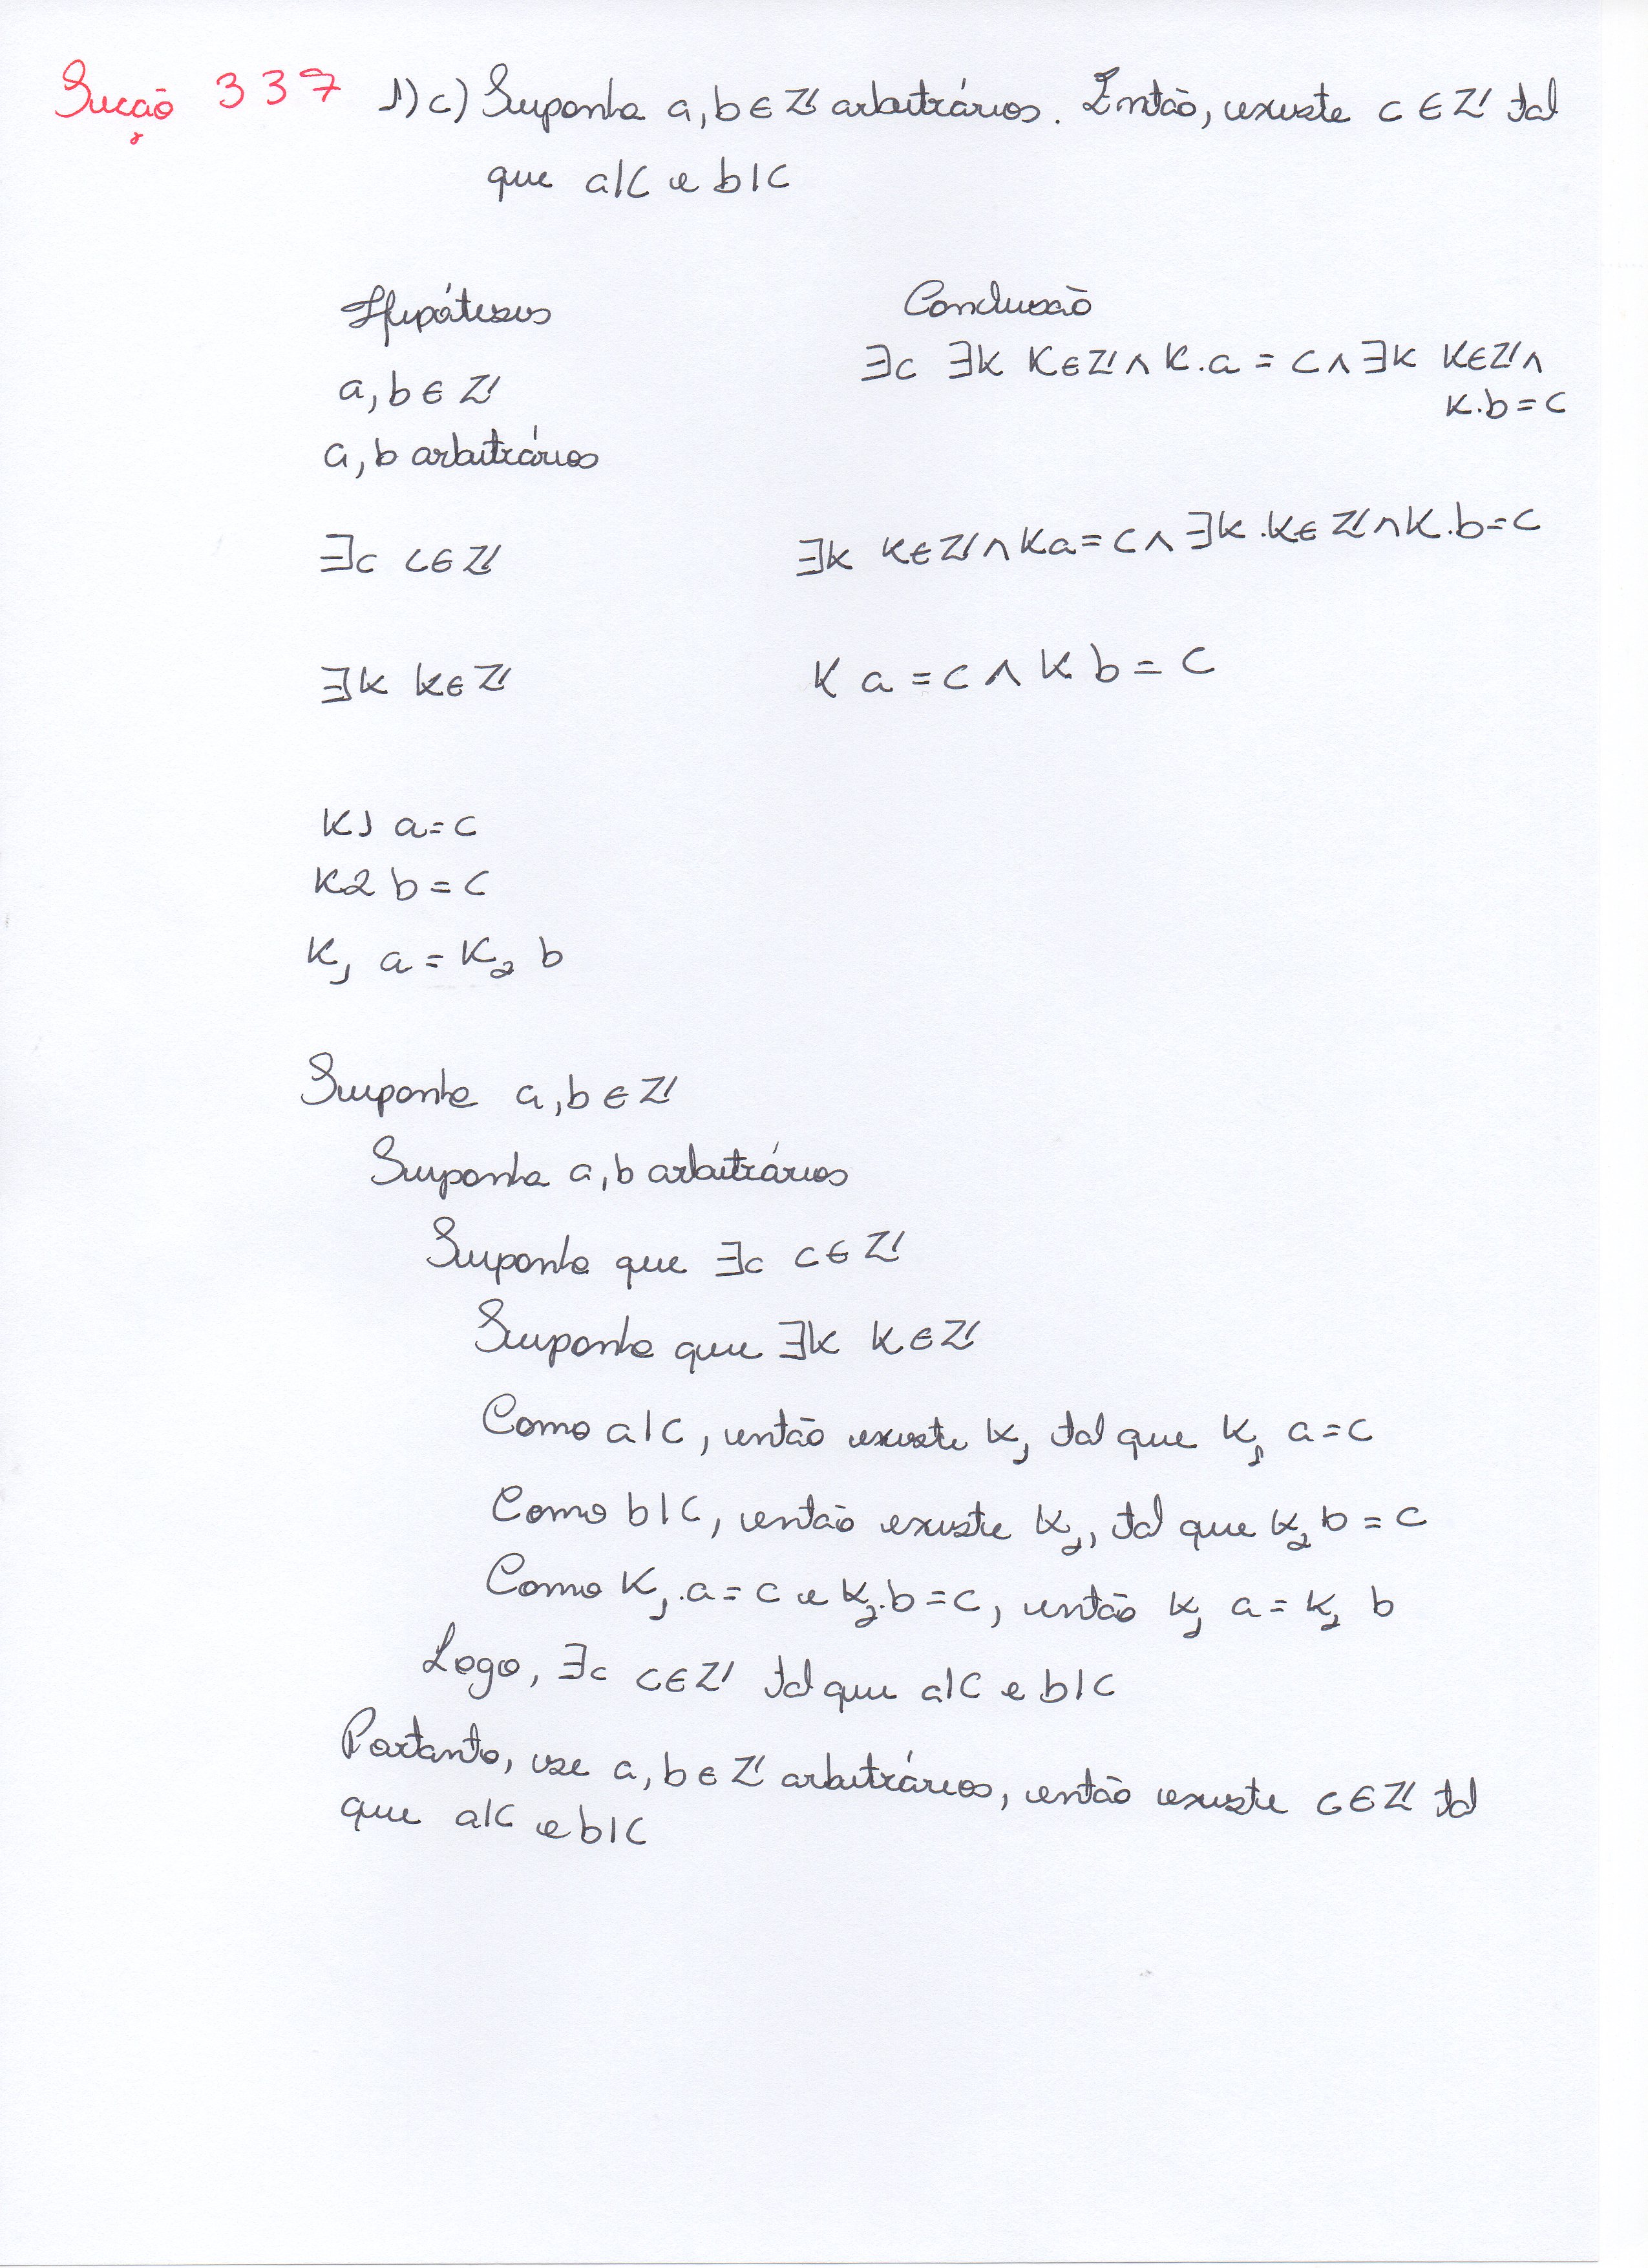 Secção 337 1) c) Suponha a, b ∈ ℤ arbitrários. Então, existe c ∈ ℤ tal
que a|c e b|c
Hipóteses Conclusão
a, b ∈ ℤ ∃c ∃k k∈ℤ ∧ k.a = c ∧ ∃k k∈ℤ ∧
k.b = c
a, b arbitrários
∃c c∈ℤ ∃k k∈ℤ ∧ ka = c ∧ ∃k .k∈ℤ ∧ k.b = c
∃k k∈ℤ k a = c ∧ k b = c
k1 a = c
k2 b = c
k₁ a = k₂ b
Suponha a, b ∈ ℤ
Suponha a, b arbitrários
Suponha que ∃c c∈ℤ
Suponha que ∃k k∈ℤ
Como a|c, então existe k₁ tal que k₁ a = c
Como b|c, então existe k₂, tal que k₂ b = c
Como k₁.a = c e k₂.b = c, então k₁ a = k₂ b
Logo, ∃c c∈ℤ tal que a|c e b|c
Portanto, se a, b ∈ ℤ arbitrários, então existe c∈ℤ tal
que a|c e b|c